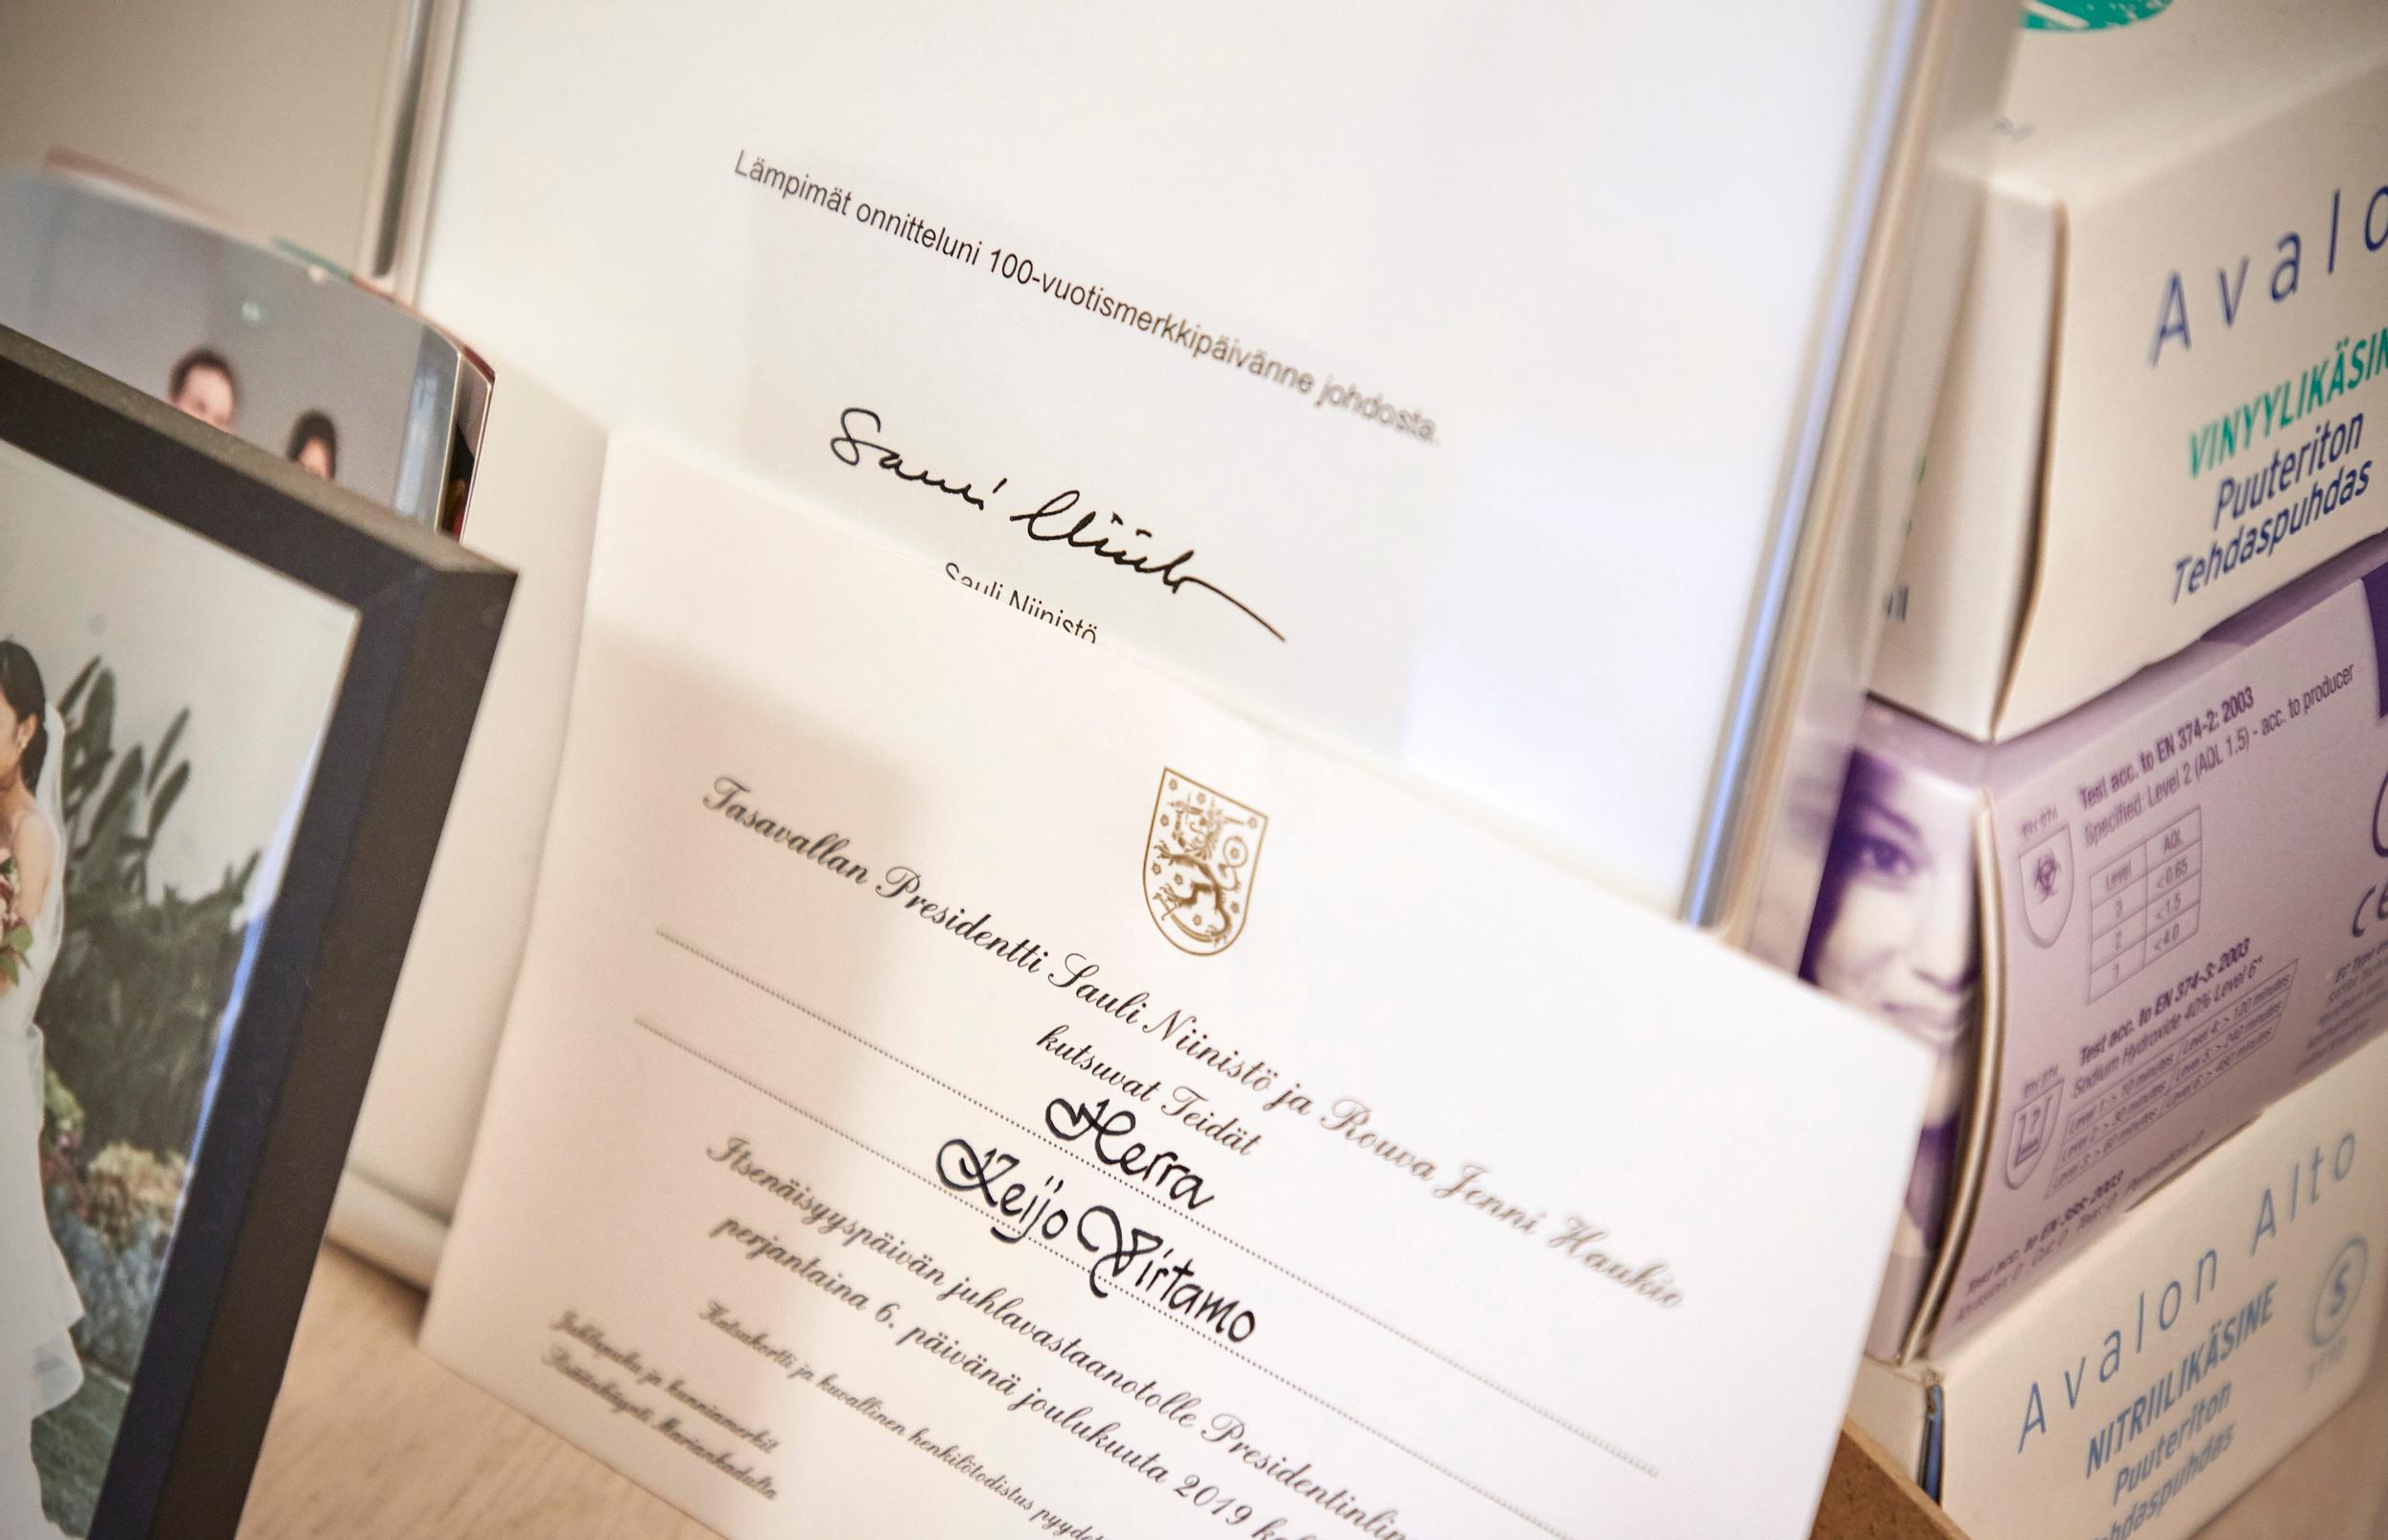 Lämpimät onnitteluni 100-vuotismerkkipäivänne johdosta.
Sauli Niinistö
Sauli Niinistö
Tasavallan Presidentti Sauli Niinistö ja Rouva Jenni Haukio
kutsuvat Teidät
Herra
Keijo Virtamo
Itsenäisyyspäivän juhlavastaanotolle Presidentinlin
perjantaina 6. päivänä joulukuuta 2019 k
Kutsukortti ja kuvallinen henkilötodistus pyydet
Juhlapuku ja kunniamerkit
Sisäänkäynti Mariankadulta
Avalo
VINYYLIKÄSIN
Puuteriton
Tehdaspuhdas
EN 374
Test acc. to EN 374-2: 2003
Specified: Level 2 (AQL 1.5) - acc. to producer
Level AQL
3 <0.65
2 <1.5
1 <4.0
CE
EN 374
Test acc. to EN 374-3: 2003
Sodium Hydroxide 40% Level 6*
Level 1: > 10 minutes Level 4: > 120 minutes
Level 2: > 30 minutes Level 5: > 240 minutes
Level 3: > 60 minutes Level 6: > 480 minutes
Test acc. to EN 388: 2003
Avalon Alto
NITRIILIKÄSINE
Puuteriton
hdaspuhdas
S